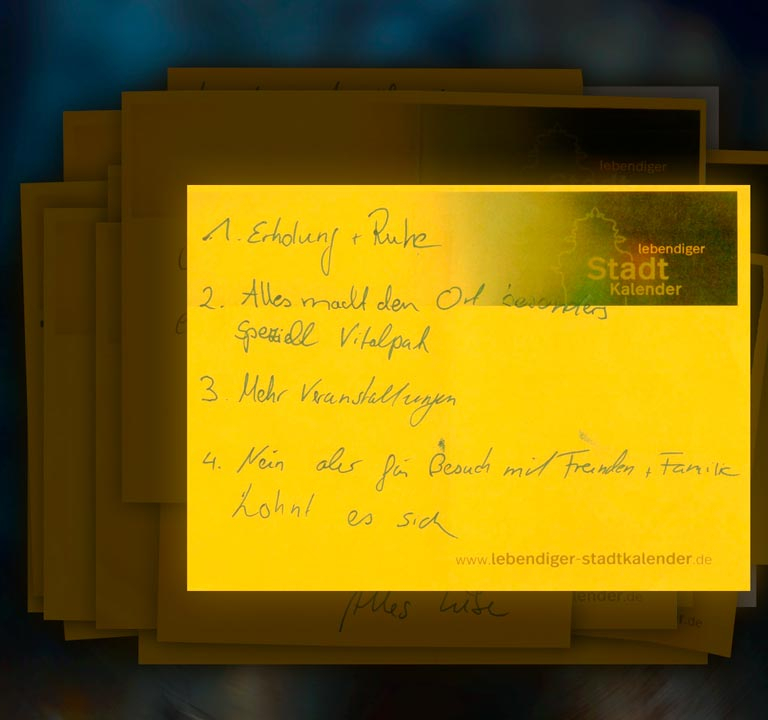 lebendiger
lebendiger
Stadt
Kalender
1. Erholung + Ruhe
2. Alles macht den Ort besonders
speziell Vitalpark
3. Mehr Veranstaltungen
4. Nein aber für Besuch mit Freunden + Familie
Lohnt es sich
www.lebendiger-stadtkalender.de
Alles